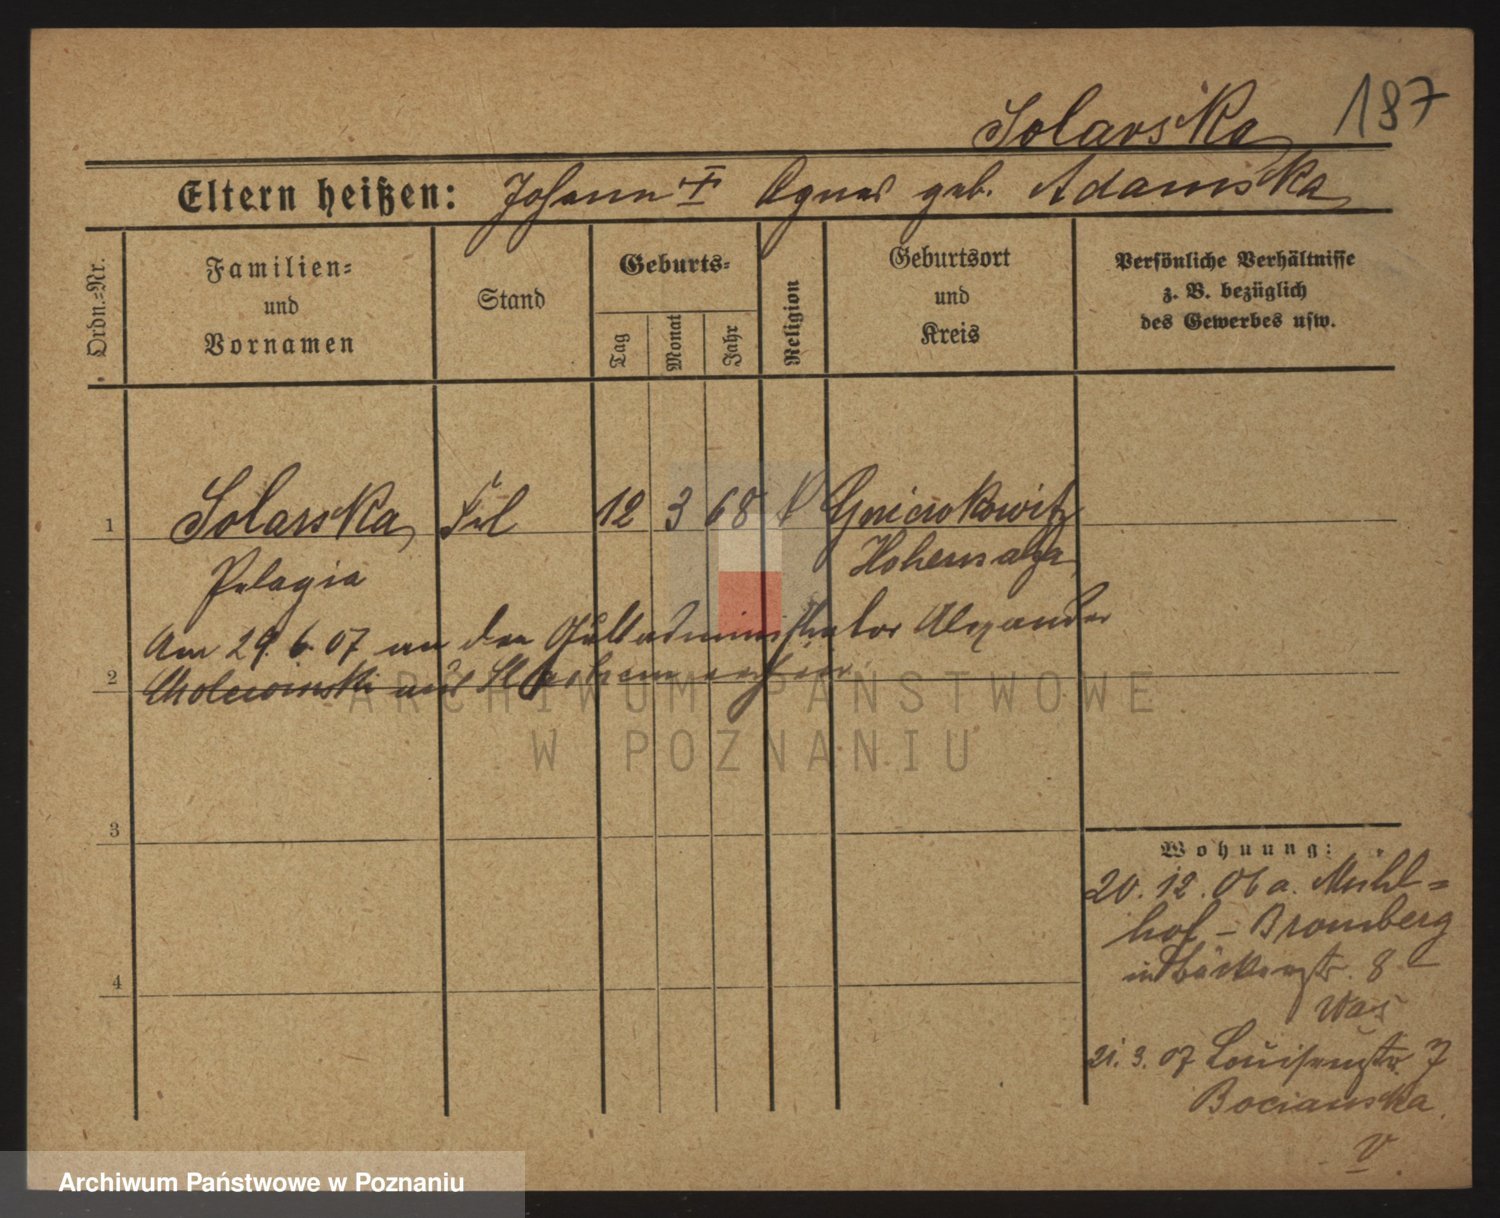 187
Solarska
Eltern heißen: Johann † Agnes geb. Adamska
Ordn.=Nr.
Familien=
und
Vornamen
Stand
Geburts=
Tag
Monat
Jahr
Religion
Geburtsort
und
Kreis
Persönliche Verhältnisse
z. B. bezüglich
des Gewerbes usw.
1 Solarska Frl 12 3 68 k Gniewkowitz
Pelagia Hohensalza
Am 29.6.07 an den Gutsadministrator Alexander
2 Cholewinski aus
3
4
Wohnung:
20.12.06 a. Mühl=
hof – Bromberg
in Bäckerstr. 8
21.3.07 Louisenstr. 7
Bocianska
V.
ARCHIWUM PAŃSTWOWE
W POZNANIU
Archiwum Państwowe w Poznaniu